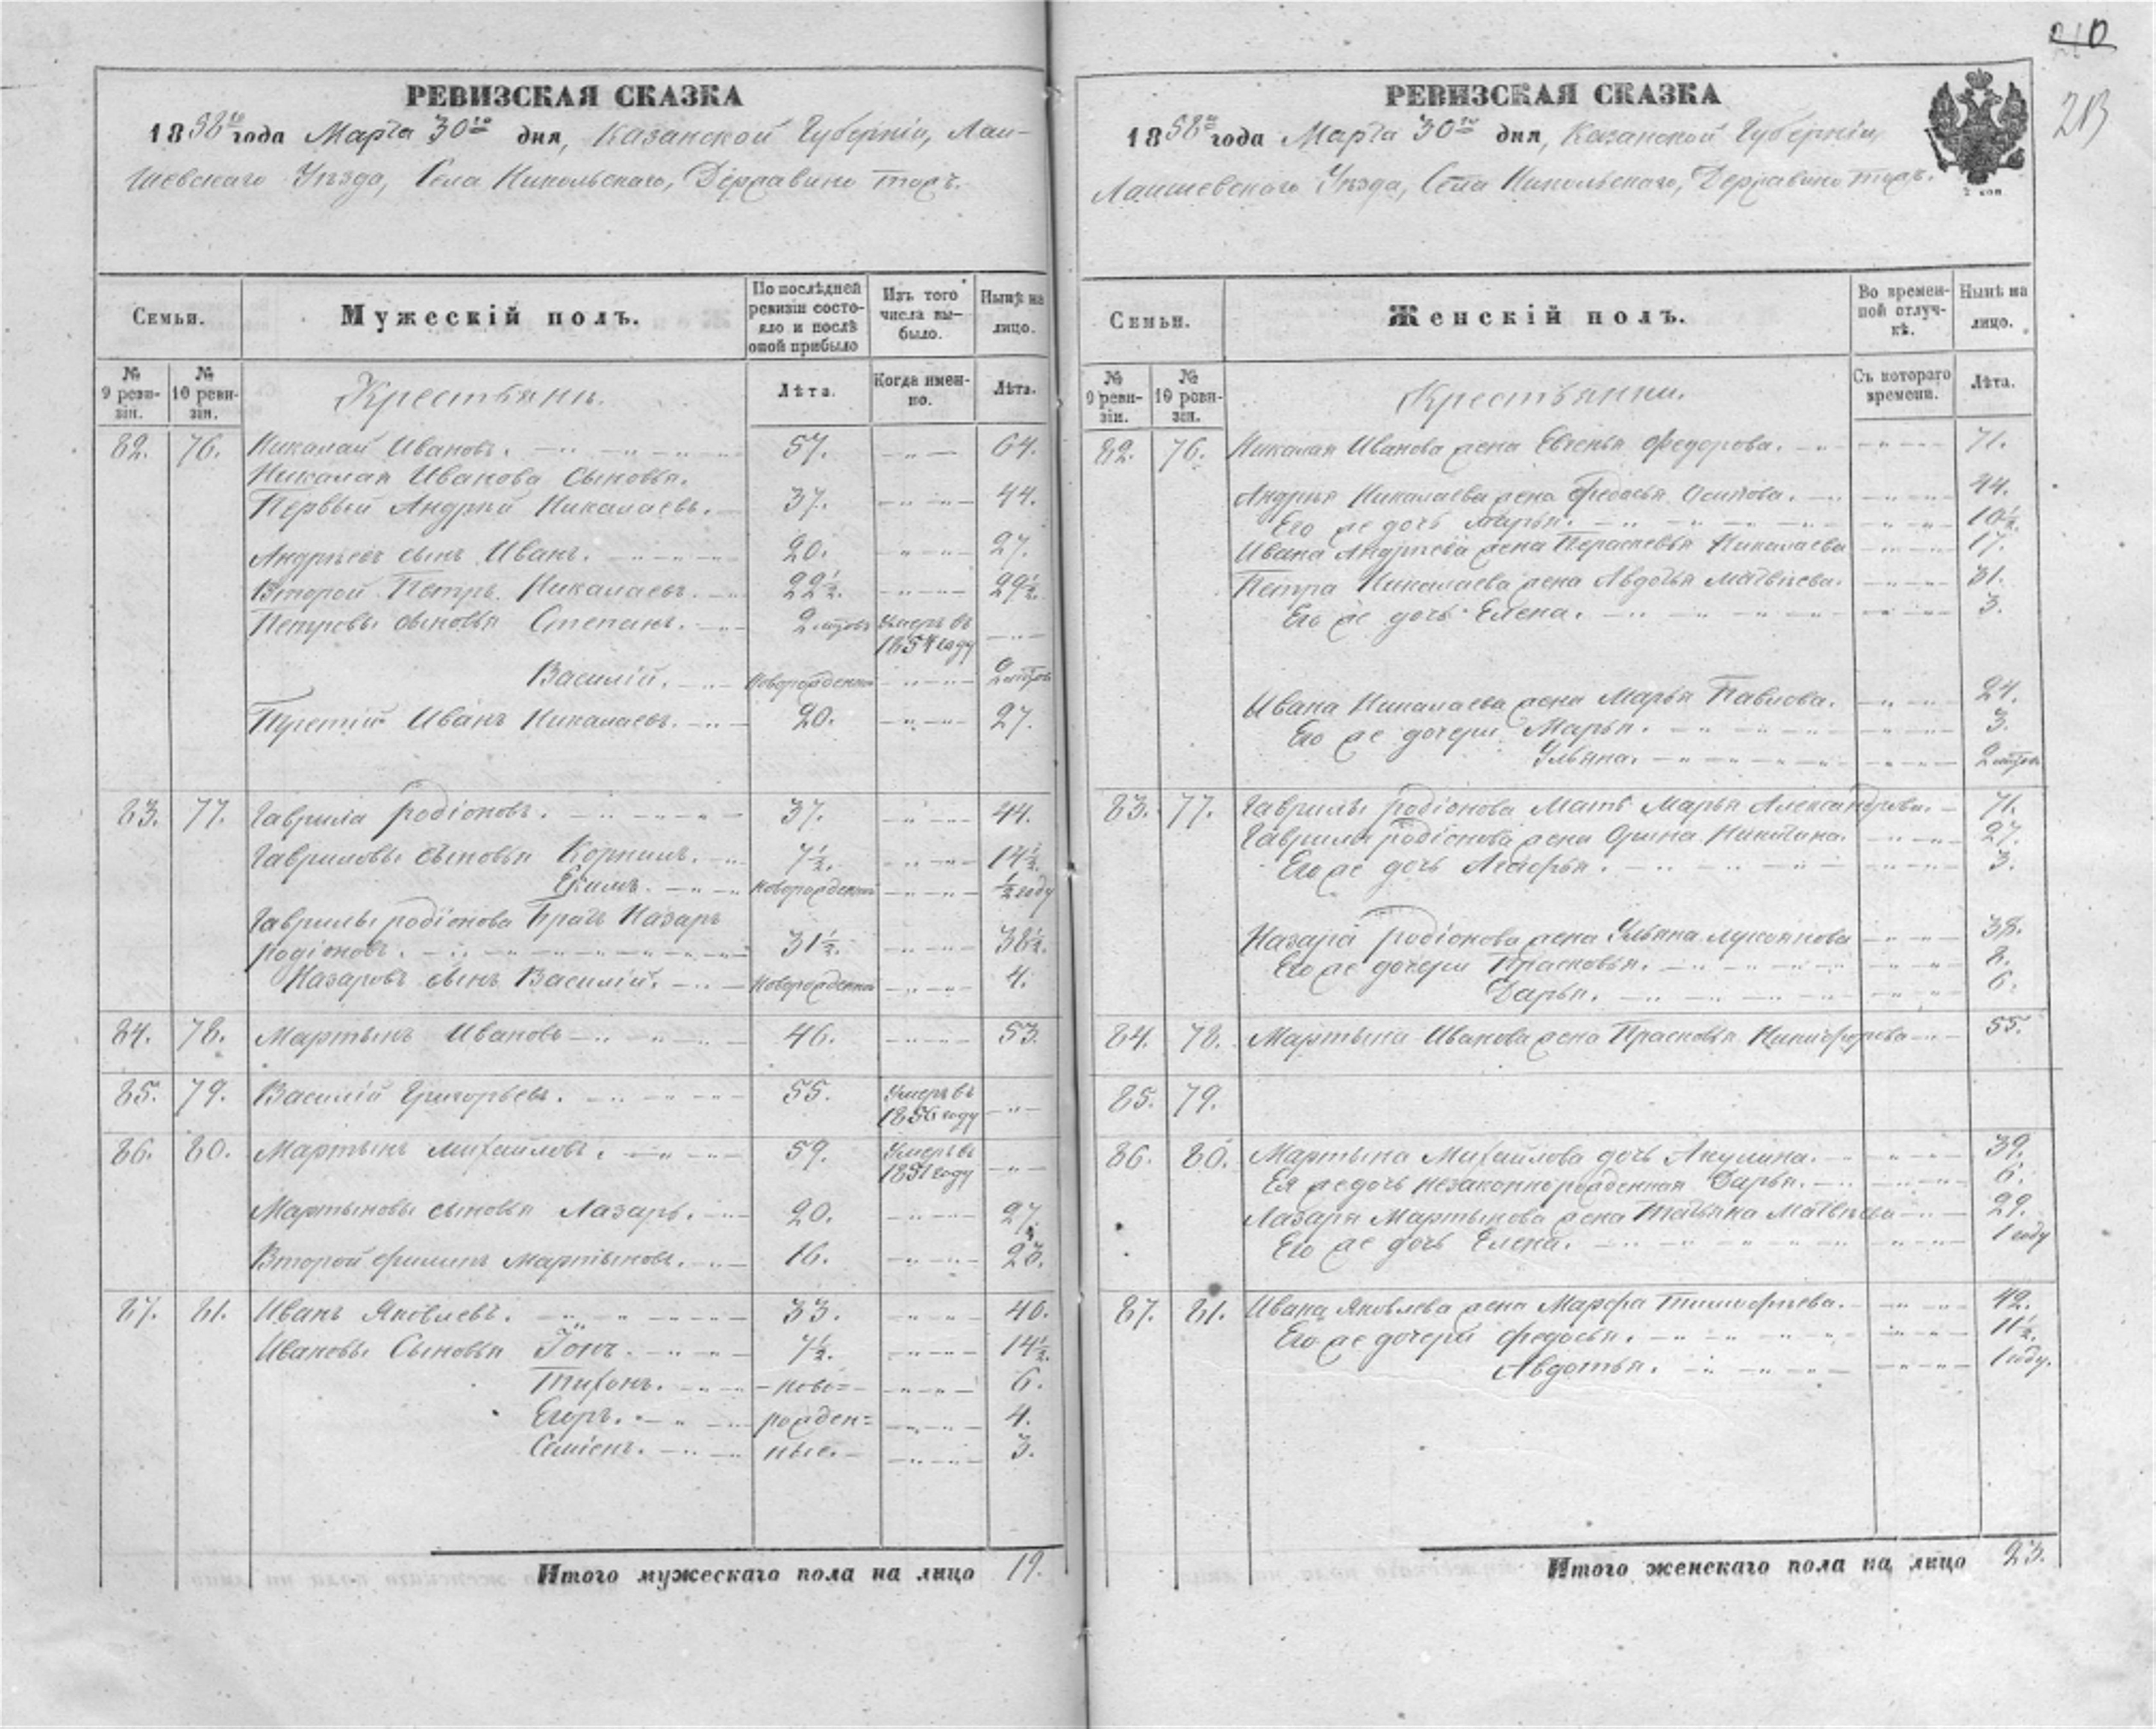 РЕВИЗСКАЯ СКАЗКА
1858го года Марта 30го дня, Казанской Губерніи, Лаи-
шевскаго Уѣзда, Села Никольскаго, Державино тожъ.
Семьи.
Мужескій полъ.
По послѣдней ревизіи состо-яло и послѣ оной прибыло
Изъ того числа вы-было.
Нынѣ на лицо.
№ 9 реви-зіи.
№ 10 реви-зіи.
Крестьянъ.
Лѣта.
Когда имен-но.
Лѣта.
82. 76. Николай Ивановъ. 57. 64.
Николая Иванова Сыновья.
Первый Андрей Николаевъ. 37. 44.
Андреевъ сынъ Иванъ. 20. 27.
Второй Петръ Николаевъ. 22½. 29½.
Петровы сыновья Степанъ. Умеръ въ
1854 году
Василій. новорожденный
Третій Иванъ Николаевъ. 20. 27.
83. 77. Гаврила Родіоновъ. 37. 44.
Гавриловы сыновья Корнилъ. 7½. 14½.
Екимъ. новорожденный ½ году
Гаврилы Родіонова Братъ Назаръ
Родіоновъ. 31½. 38½.
Назаровъ сынъ Василій. новорожденный 4.
84. 78. Мартынъ Ивановъ 46. 53.
85. 79. Василій Григорьевъ. 55. Умеръ въ
1856 году
86. 80. Мартынъ Михайловъ. 59. Умеръ въ
1851 году
Мартыновы сыновья Лазарь. 20. 27.
Второй Филипъ Мартыновъ. 16. 23.
87. 81. Иванъ Яковлевъ. 33. 40.
Ивановы Сыновья Іонъ. 7½. 14½.
Тихонъ. ново= 6.
Егоръ. рожден= 4.
Семіенъ. ные. 3.
Итого мужескаго пола на лицо 19.
210
213
РЕВИЗСКАЯ СКАЗКА
1858го года Марта 30го дня, Казанской Губерніи,
Лаишевскаго Уѣзда, Села Никольскаго, Державино тожъ.
2 коп
Семьи.
Женскій полъ.
Во времен-ной отлуч-кѣ.
Нынѣ на лицо.
№ 9 реви-зіи.
№ 10 реви-зіи.
Крестьянки.
Съ котораго времени.
Лѣта.
82. 76. Николая Иванова жена Евгенья Федорова. 71.
Андрея Николаева жена Федосья Осипова. 44.
Его же дочь Марья. 10½.
Ивана Андреева жена Пераскевья Николаева 17.
Петра Николаева жена Авдотья Матвѣева. 31.
Его же дочь Елена. 3.
Ивана Николаева жена Марья Павлова. 24.
Его же дочери Марья. 3.
Ульяна.
83. 77. Гаврилы Родіонова Мать Марья Александрова. 71.
Гаврилы Родіонова жена Орина Никитина. 27.
Его же дочь Агафья. 3.
Назара Родіонова жена Ульяна Лукоянова 38.
Его же дочери Прасковья. 8.
Дарья. 6.
84. 78. Мартына Иванова жена Прасковья Никифорова 55.
85. 79.
86. 80. Мартына Михайлова дочь Акулина. 39.
Ея же дочь незаконнорожденная Дарья. 6.
Лазаря Мартынова жена Татьяна Матвѣева 29.
Его же дочь Елена. 1 году
87. 81. Ивана Яковлева жена Марфа Тимофѣева. 42.
Его же дочери Федосья. 11½.
Авдотья. 1 году.
Итого женскаго пола на лицо 23.